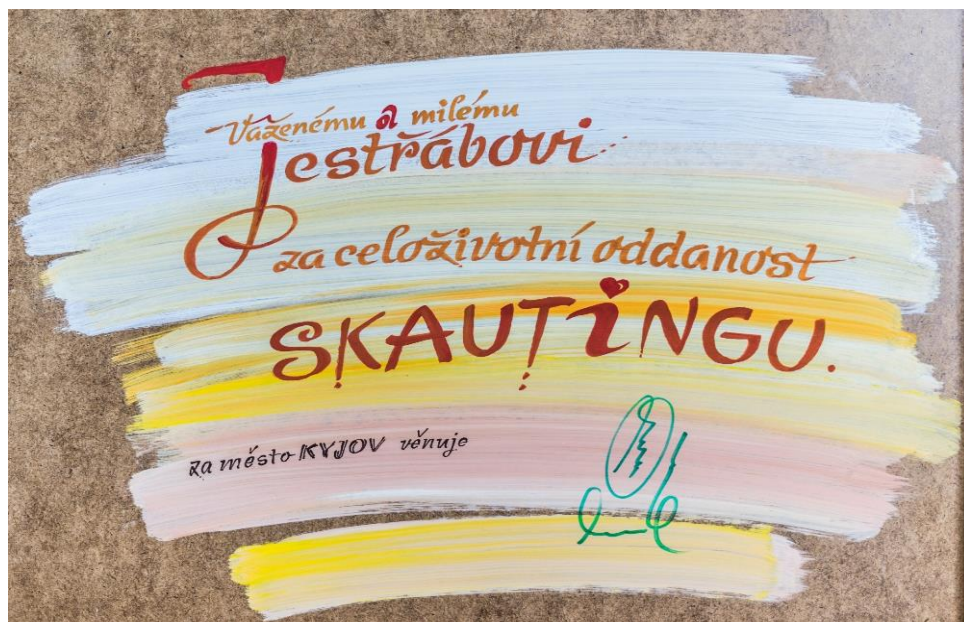 Váženému a milému
Jestřábovi
za celoživotní oddanost
SKAUTiNGU.
za město KYJOV věnuje